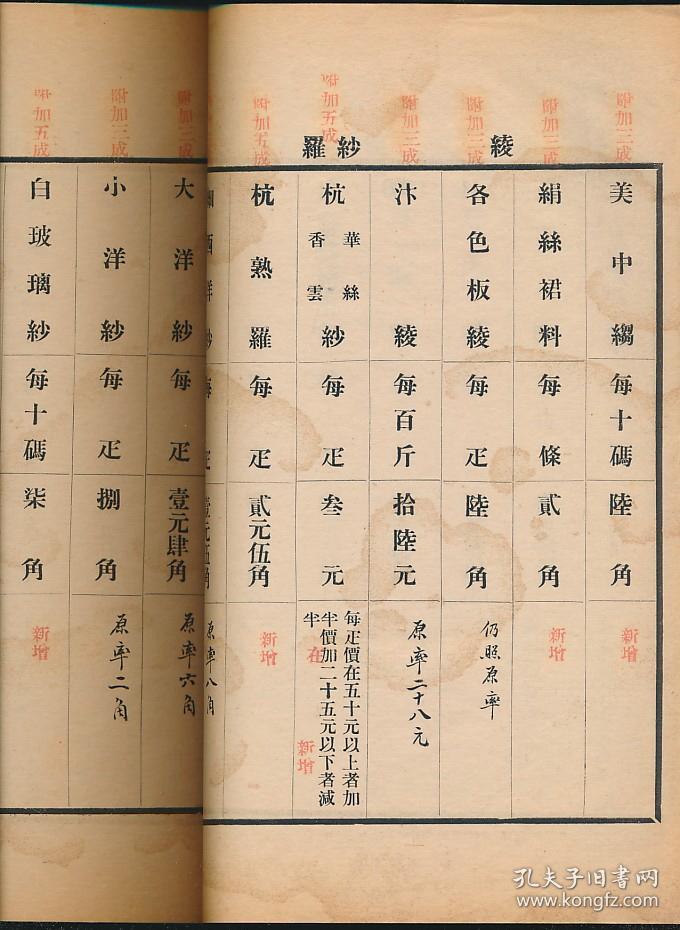 綾
紗羅
附加三成
美中縐 每十碼 陸角 新增
附加三成
絹絲裙料 每條 貳角 新增
附加三成
各色板綾 每疋 陸角 仍照原率
附加三成
汴綾 每百斤 拾陸元 原率二十八元
附加五成
杭華絲香雲紗 每疋 叁元
每疋價在五十元以上者加
半價加二十五元以下者減
半
在
新增
附加五成
杭熟羅 每疋 貳元伍角 新增
西洋紗 每疋 壹元伍角 原率八角
附加三成
大洋紗 每疋 壹元肆角 原率六角
附加三成
小洋紗 每疋 捌角 原率二角
附加五成
白玻璃紗 每十碼 柒角 新增
孔夫子旧书网
www.kongfz.com